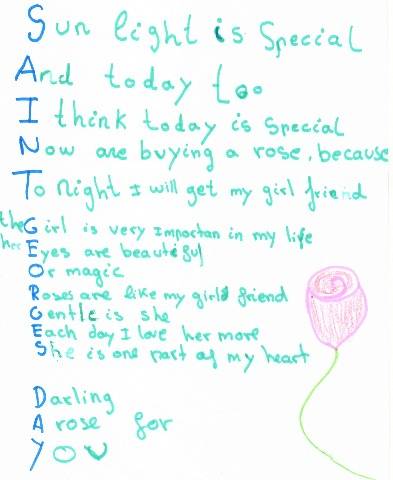 Sun light is Special
And today too
I think today is special
Now are buying a rose, because
To night I will get my girl friend
the Girl is very importan in my life
her Eyes are beautiful
Or magic
Roses are like my girld friend
Gentle is she
Each day I love her more
She is one part of my heart
Darling
A rose for
You